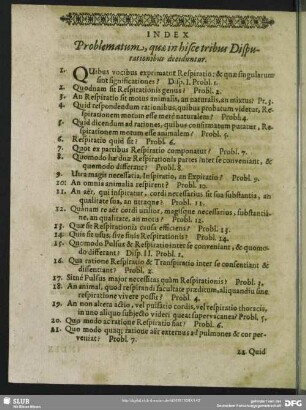 INDEX
Problematum, quæ in hisce tribus Dispu-
tationibus deciduntur.
1. QUibus vocibus exprimatur Respiratio: & quæ singularum
sint significationes? Disp. I. Probl. 1.
2. Quodnam sit Respirationis genus? Probl. 2.
3. An Respiratio sit motus animalis, an naturalis, an mixtus? Pr. 3.
4. Quid respondendum rationibus, quibus probatum videtur, Re-
spirationem motum esse merè naturalem? Probl. 4.
5. Quid dicendum ad rationes, quibus confirmatum putatur, Re-
spirationem motum esse animalem? Probl. 5.
6. Respiratio quid sit? Probl. 6.
7. Quot ex partibus Respiratio componatur? Probl. 7.
8. Quomodo hæ duæ Respirationis partes inter se conveniant, &
quomodo differant? Probl. 8.
9. Utra magis necessaria, Inspiratio, an Expiratio? Probl. 9.
10. An omnia animalia respirent? Probl. 10.
11. An aër, qui inspiratur, cordi necessarius sit sua substantia, an
qualitate sua, an utraque? Probl. 11.
12. Quânam re aër cordi utilior, magisque necessarius, substantiâ-
ne, an qualitate, an motu? Probl. 12.
13. Quæ sit Respirationis causa efficiens? Probl. 13.
14. Quis sit usus, sive finis Respirationis? Probl. 14.
15. Quomodo Pulsus & Respiratio inter se conveniant, & quomo-
do differant? Disp. II. Probl. 1.
16. Qua ratione Respiratio & Transpiratio inter se consentiant &
dissentiant? Probl. 2.
17. Sintne Pulsus magis necessarii quàm Respirationis? Probl. 3.
18. An animal, quod respirandi facultate præditum, aliquandiu sine
respiratione vivere possit? Probl. 4.
19. An non alterâ actio, vel pulsatio cordis, vel respiratio thoracis,
in uno aliquo subjecto videri queat supervacanea? Probl. 5.
20. Quo modo ac ratione Respiratio fiat? Probl. 6.
21. Quo modo quaque ratione aër externus ad pulmones & cor per-
veniat? Probl. 7.
22. Quid
SLUB
Wir führen Wissen.
DFG